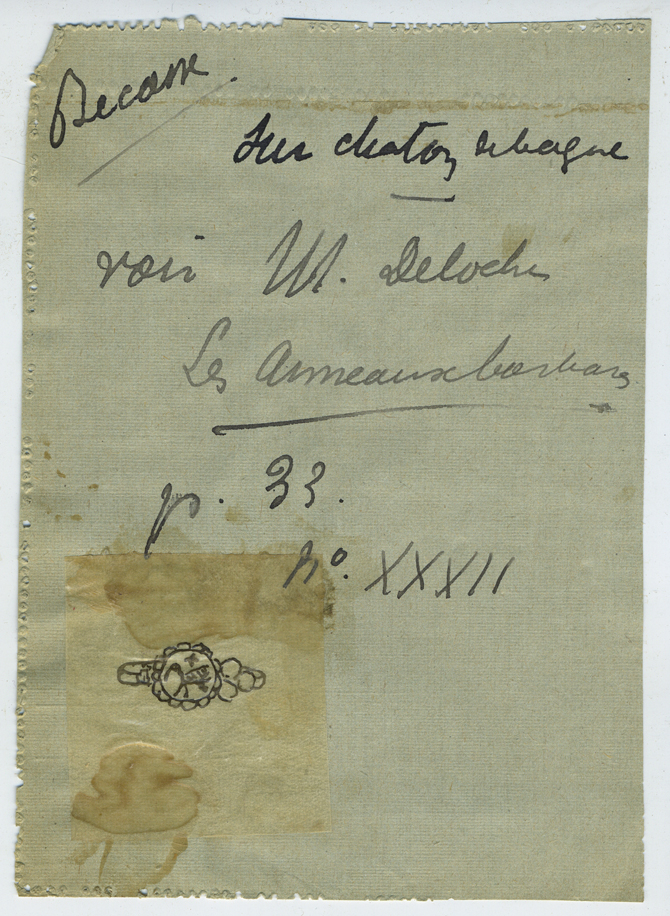 Becasse
sur chaton de bague
voir M. Deloche
Les Anneaux barbares
p. 33.
No. XXXII